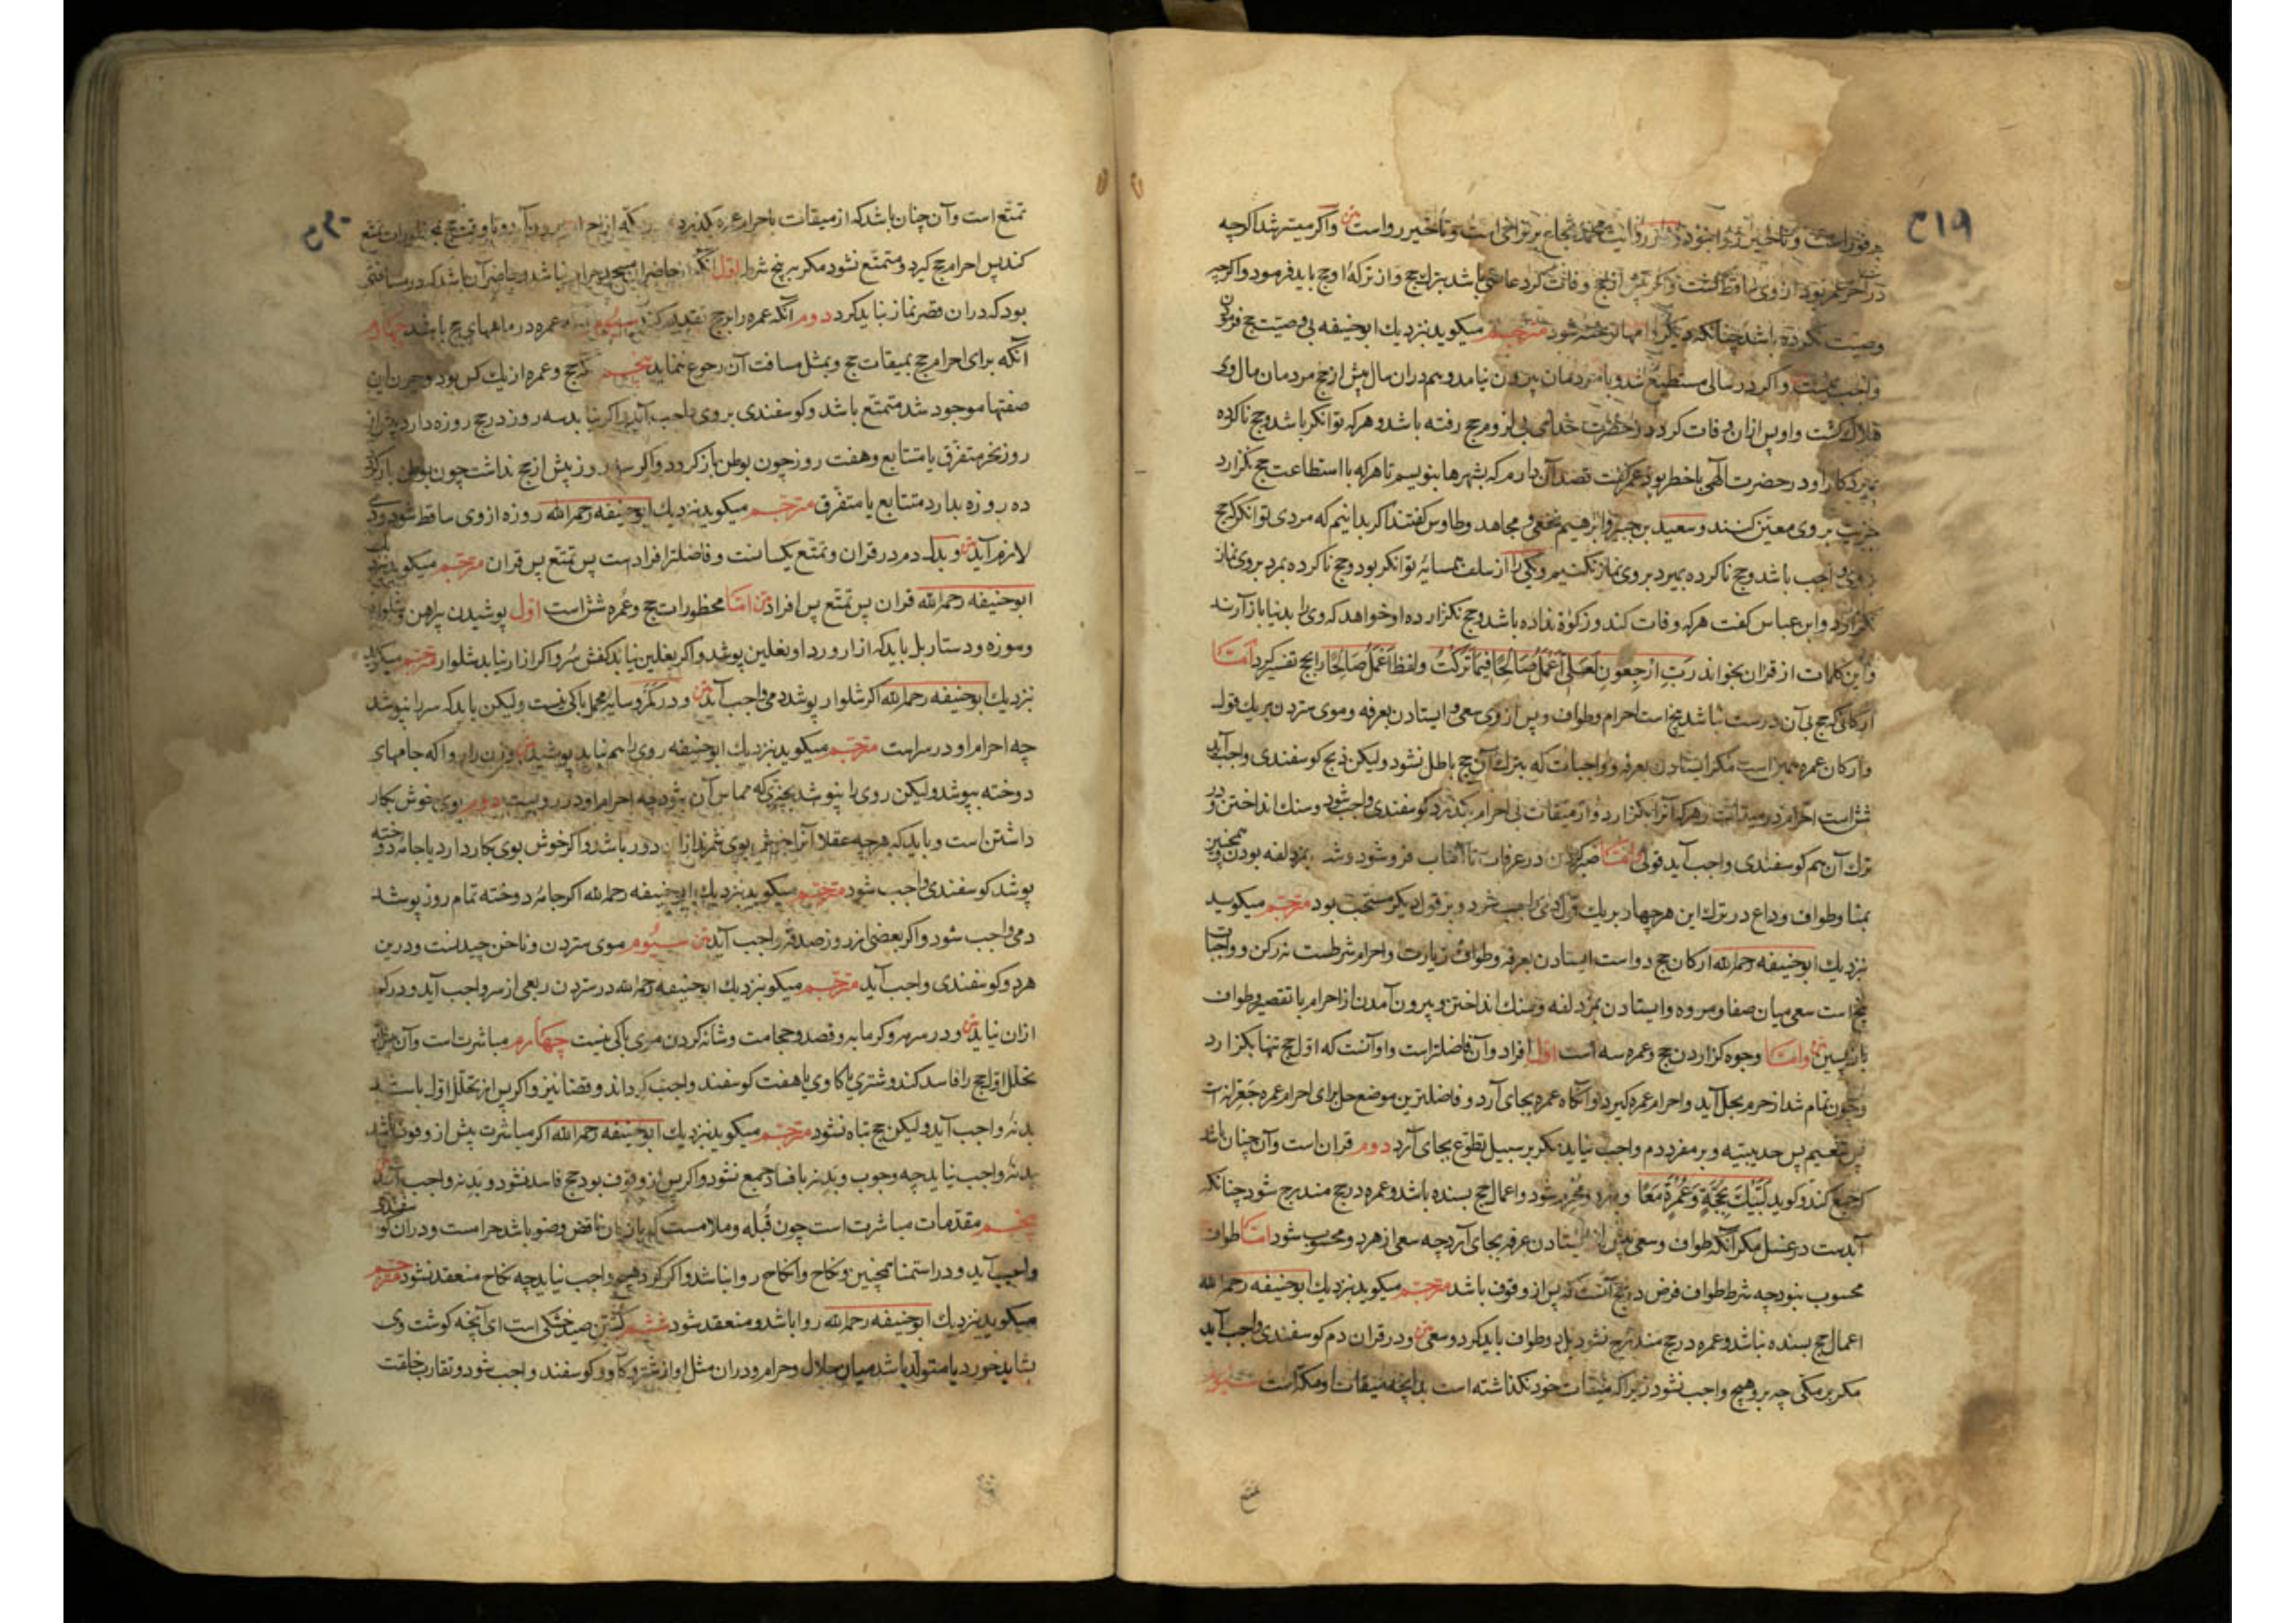 ۲۱۹
بر فور است و تأخیر روا نبود و در روایت محمد شجاع بر تراخی است و تأخیر رواست متن واکر میسر شد اکرچه
در آخر عمر بود از وی ساقط کشت واکر پیش از حج وفات کرد عاصی باشد بترک حج و از ترکهٔ او حج باید فرمود واکرچه
وصیت نکرده باشد چنانکه دیکر وامها توخته شود مترجم میکوید نزدیك ابوحنیفه بی وصیت حج فرمودن
واجب نیست واکر در سالی مستطیع شد و با مردمان بیرون نیامد و هم دران سال پیش از حج مردمان مال وی
هلاك کشت و او پس ازان وفات کرد در حضرت خدای بی لزوم حج رفته باشد و هرکه توانکر باشد و حج ناکرده
بمیرد کار او در حضرت الهی باخطر بود عمر کفت قصد آن دارم که بشهرها بنویسم تا هرکه با استطاعت حج نکزارد
جزیت بر وی معین کنند و سعید بن جبیر و ابرهیم نخعی و مجاهد و طاوس کفتند اکر بدانیم که مردی توانکر که حج
بر وی واجب باشد و حج ناکرده بمیرد بر وی نماز نکنیم و یکی را از سلف همسایهٔ توانکر بود و حج ناکرده بمرد بر وی نماز
نکزارد و ابن عباس کفت هرکه وفات کند و زکوة نداده باشد و حج نکزارده او خواهد که وی را بدنیا باز آرند
و این کلمات از قرآن بخواند رَبِّ ارْجِعُونِ لَعَلِّی أَعْمَلُ صَالِحًا فِیمَا تَرَکْتُ و لفظ أَعْمَلُ صَالِحًا را بحج تفسیر کرد امّا
ارکانی که حج بی آن درست نباشد پنج است احرام و طواف و پس از وی سعی و ایستادن بعرفه و موی ستردن بر یك قول
و ارکان عمره همین است مکر ایستادن بعرفه و واجبات که بترك آن حج باطل نشود ولیکن ذبح کوسفندی واجب آید
شش است احرام در میقات و هرکه آنرا بکزارد و از میقات بی احرام بکذرد کوسفندی واجب شود و سنك انداختن و در
ترك آن هم کوسفندی واجب آید قولی واحد امّا صبر کردن در عرفات تا آفتاب فرو شود و شب بمزدلفه بودن و همچنین
بمنا و طواف وداع در ترك این هر چهار بریك قول دمی واجب شود و بر قول دیکر مستحب بود مترجم میکوید
نزدیك ابوحنیفه رحمه الله ارکان حج دو است ایستادن بعرفه و طواف زیارت و احرام شرطست نه رکن و واجبات
پنج است سعی میان صفا و مروه و ایستادن بمزدلفه و سنك انداختن و بیرون آمدن از احرام با تقصیر و طواف
بازپسین متن و امّا وجوه کزاردن حج و عمره سه است اول افراد و آن فاضلتر است و او آنست که اول حج تنها بکزارد
و چون تمام شد از حرم بحل آید و احرام عمره کیرد و آنکاه عمره بجای آرد و فاضلترین موضع حل برای احرام عمره جعرانه است
پس تنعیم پس حدیبیه و بر مفرد دم واجب نیاید مکر بر سبیل تطوع بجای آرد دوم قران است و آن چنان باشد
که جمع کند و کوید لَبَّیْكَ بِحَجَّةٍ وَعُمْرَةٍ مَعًا و بهر دو محرم شود و اعمال حج بسنده باشد و عمره در حج مندرج شود چنانکه
آبدست در غسل مکر آنکه طواف و سعی پیش از ایستادن عرفه بجای آرد چه سعی از هر دو محسوب شود امّا طواف
محسوب نبود چه شرط طواف فرض در حج آنست که پس از وقوف باشد مترجم میکوید نزدیك ابوحنیفه رحمه الله
اعمال حج بسنده نباشد و عمره در حج مندرج نشود بل دو طواف باید کرد و دو سعی متن و در قران دم کوسفندی واجب آید
مکر بر مکی چه برو هیچ واجب نشود زیرا که میقات خود نکذاشته است بدانچه میقات او مکه است سیوم
۲۲۰
تمتع است و آن چنان باشد که از میقات باحرام عمره بکذرد و بمکه از احرام بیرون آرد و تا وقت حج بمحظورات تمتع
کند پس احرام حج کیرد و متمتع نشود مکر به پنج شرط اول آنکه از حاضران مسجد حرام نباشد و حاضر آن باشد که در مسافتی
بود که دران قصر نماز نباید کرد دوم آنکه عمره را بر حج تقدیم کند سیوم آنکه عمره در ماههای حج باشد چهارم
آنکه برای احرام حج بمیقات حج و بمثل مسافت آن رجوع نماید پنجم آنکه حج و عمره از یك کس بود و چون این
صفتها موجود شد متمتع باشد و کوسفندی بر وی واجب آید و اکر نیابد سه روز در حج روزه دارد پیش از
روز نحر متفرق یا متتابع و هفت روز چون بوطن باز کردد و اکر سه روز پیش از حج نداشت چون بوطن باز کردد
ده روزه بدارد متتابع یا متفرق مترجم میکوید نزدیك ابوحنیفه رحمه الله روزه از وی ساقط شود و دمی
لازم آید متن و بدل دم در قران و تمتع یکسانست و فاضلتر افراد است پس تمتع پس قران مترجم میکوید نزدیك
ابوحنیفه رحمه الله قران پس تمتع پس افراد متن امّا محظورات حج و عمره شش است اول پوشیدن پیراهن و شلوار
و موزه و دستار بل باید که ازار و ردا و نعلین پوشد و اکر نعلین نیابد کفش سُر و اکر ازار نیابد شلوار مترجم میکوید
نزدیك ابوحنیفه رحمه الله اکر شلوار پوشد دمی واجب آید متن و در کمر و سایهٔ محمل باکی نیست ولیکن باید که سر را نپوشد
چه احرام او در سر است مترجم میکوید نزدیك ابوحنیفه روی را هم نباید پوشید متن و زن را روا که جامهای
دوخته بپوشد ولیکن روی را نپوشد بچیزی که مماس آن شود چه احرام او در رویست دوم بوی خوش بکار
داشتن است و باید که هرچه عقلا آنرا خوش بوی شمرند ازان دور باشد و اکر خوش بوی بکار دارد یا جامهٔ دوخته
پوشد کوسفندی واجب شود مترجم میکوید نزدیك ابوحنیفه رحمه الله اکر جامهٔ دوخته تمام روز پوشد
دمی واجب شود و اکر بعضی از روز صدقه واجب آید متن سیوم موی ستردن و ناخن چیدنست و درین
هر دو کوسفندی واجب آید مترجم میکوید نزدیك ابوحنیفه رحمه الله در ستردن ربعی از سر واجب آید و در کم
ازان نیاید متن و در سرمه و کرمابه و فصد و حجامت و شانه کردن موی باکی نیست چهارم مباشرت است و آن پیش از
تحلل اول حج را فاسد کند و شتری یا کاوی یا هفت کوسفند واجب کرداند و قضا نیز و اکر پس از تحلل اول باشد
بدنهٔ واجب آید ولیکن حج تباه نشود مترجم میکوید نزدیك ابوحنیفه رحمه الله اکر مباشرت پیش از وقوف باشد
بدنهٔ واجب نیاید چه وجوب و بدنه با فساد جمع نشود و اکر پس از وقوف بود حج فاسد نشود و بدنه واجب آید متن
پنجم مقدمات مباشرت است چون قُبله و ملامست که بازنان ناقض وضو باشد حرامست و دران کوسفندی
واجب آید و در استمنا همچنین و نکاح و انکاح روا نباشد و اکر کرد هیچ واجب نیاید چه نکاح منعقد نشود مترجم
میکوید نزدیك ابوحنیفه رحمه الله روا باشد و منعقد شود ششم کشتن صید خشکی است ای آنچه کوشت وی
بشاید خورد یا متولد باشد میان حلال و حرام و دران مثل او از شتر و کاو و کوسفند واجب شود و تقارب خلقت